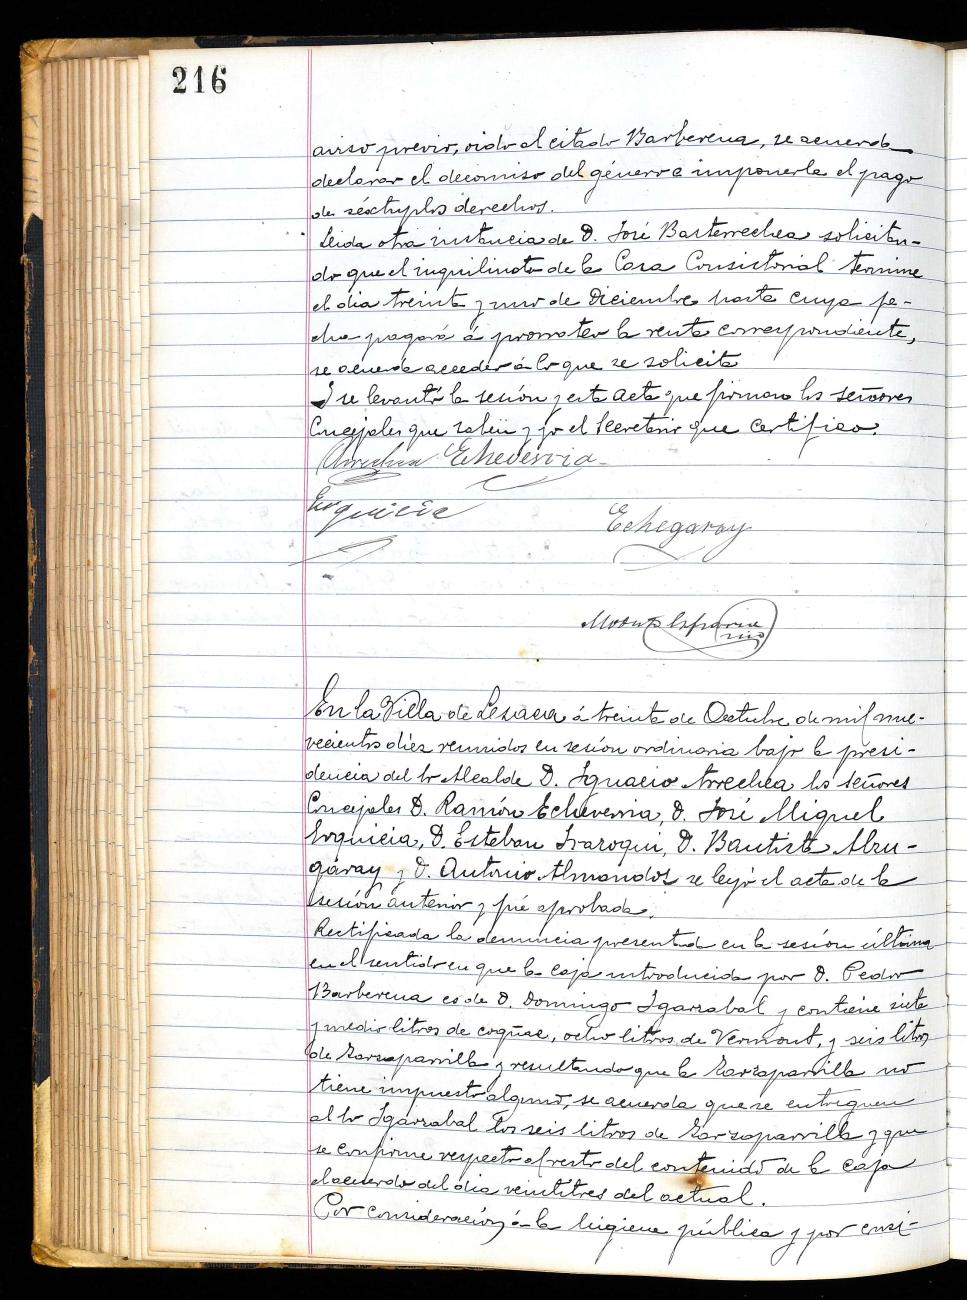 216
aviso previo, oido al citado Barberena, se acuerda
declarar el decomiso del género é imponerle el pago
de séxtuplos derechos.
Leida otra instancia de D. José Basterrechea solicitan-
do que el inquilinato de la Casa Consistorial termine
el dia treinta y uno de Diciembre hasta cuya fe-
cha pagará á prorrateo la renta correspondiente,
se acuerda acceder á lo que se solicita
Y se levantó la sesión y esta acta que firman los señores
Concejales que saben y yo el Secretario que certifico.
Arrechea Echeverria
Esquicia
Echegaray
En la Villa de Lesaca á treinta de Octubre de mil nue-
vecientos diez reunidos en sesión ordinaria bajo la presi-
dencia del Sr Alcalde D. Ignacio Arrechea los señores
Concejales D. Ramón Echeverria, D. José Miguel
Esquicia, D. Esteban Irazoqui, D. Bautista Alzu-
garay y D. Antonio Almandoz se leyó el acta de la
sesión anterior y fué aprobada.
Rectificada la denuncia presentada en la sesión última
en el sentido en que la caja introducida por D. Pedro
Barberena es de D. Domingo Igarzabal y contiene siete
y medio litros de cogñac, ocho litros de Vermout, y seis litros
de Zarzaparrilla y resultando que la Zarzaparrilla no
tiene impuesto alguno, se acuerda que se entreguen
al Sr Igarzabal los seis litros de Zarzaparrilla y que
se confirme respecto al resto del contenido de la caja
el acuerdo del dia veintitres del actual.
Por consideración á la higiene pública y por consi-